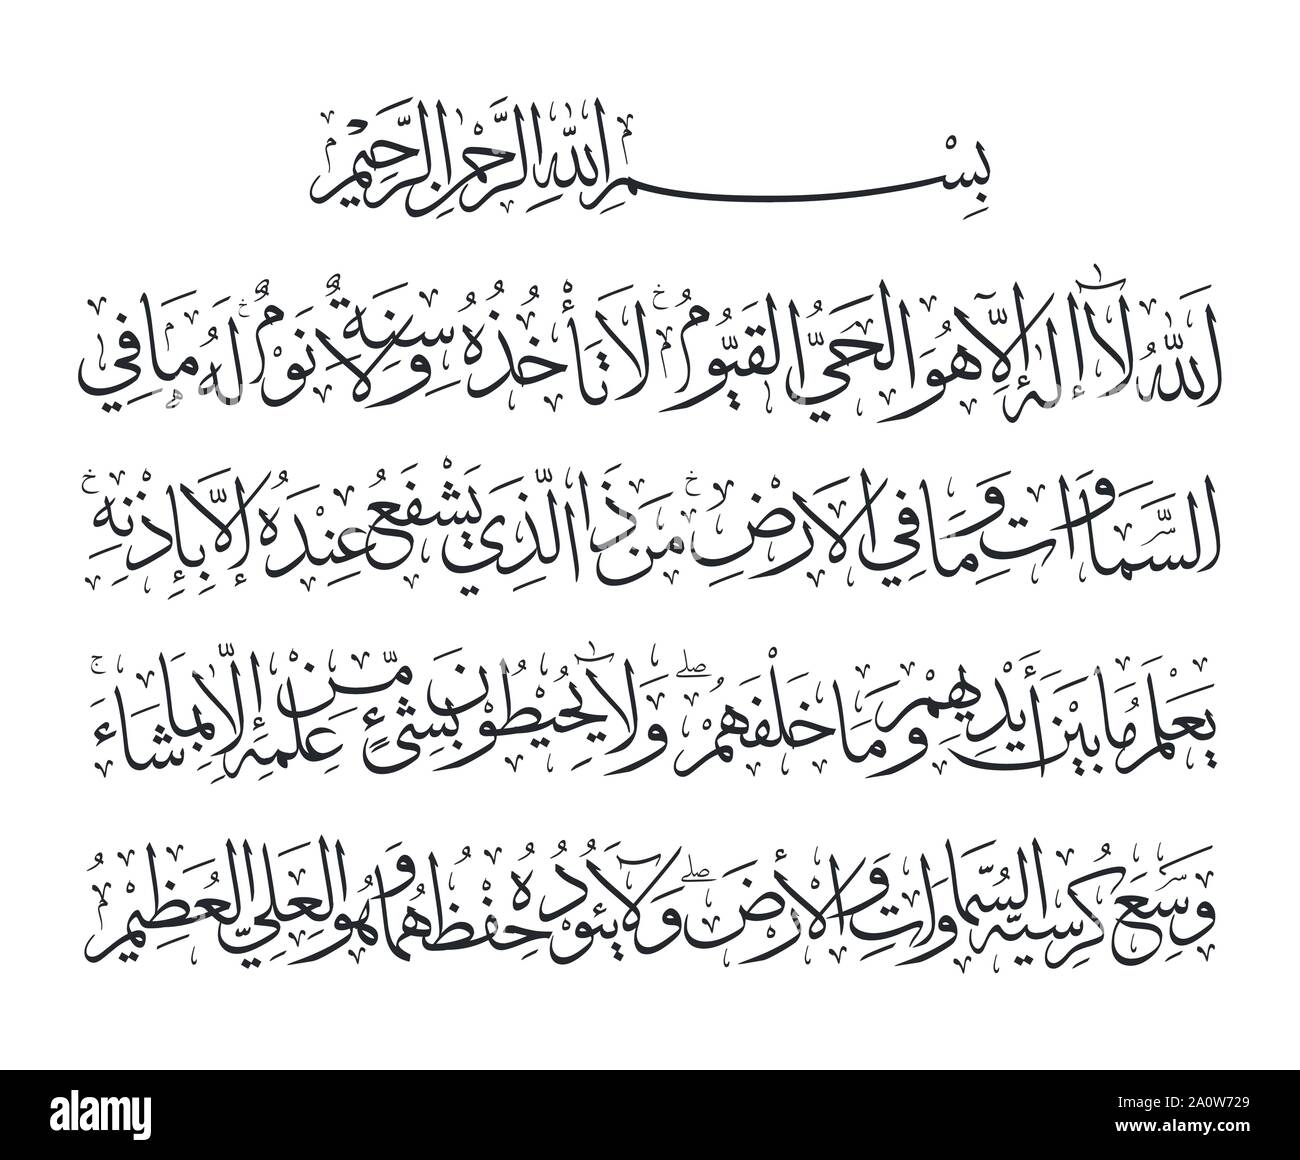 بِسْمِ اللهِ الرَّحْمٰنِ الرَّحِيْمِ
اَللهُ لَآ اِلٰهَ اِلَّا هُوَ الْحَيُّ الْقَيُّومُ لَا تَأْخُذُهُ سِنَةٌ وَلَا نَوْمٌ لَهُ مَا فِي
السَّمَاوَاتِ وَمَا فِي الْاَرْضِ مَنْ ذَا الَّذِي يَشْفَعُ عِنْدَهُ اِلَّا بِاِذْنِهِ
يَعْلَمُ مَا بَيْنَ أَيْدِيهِمْ وَمَا خَلْفَهُمْ وَلَا يُحِيْطُونَ بِشَيْءٍ مِّنْ عِلْمِهِ اِلَّا بِمَا شَاءَ
وَسِعَ كُرْسِيُّهُ السَّمَاوَاتِ وَالْأَرْضَ وَلَا يَئُودُهُ حِفْظُهُمَا وَهُوَ الْعَلِيُّ الْعَظِيْمُ
alamy
a
alamy
a
Image ID: 2A0W729
www.alamy.com